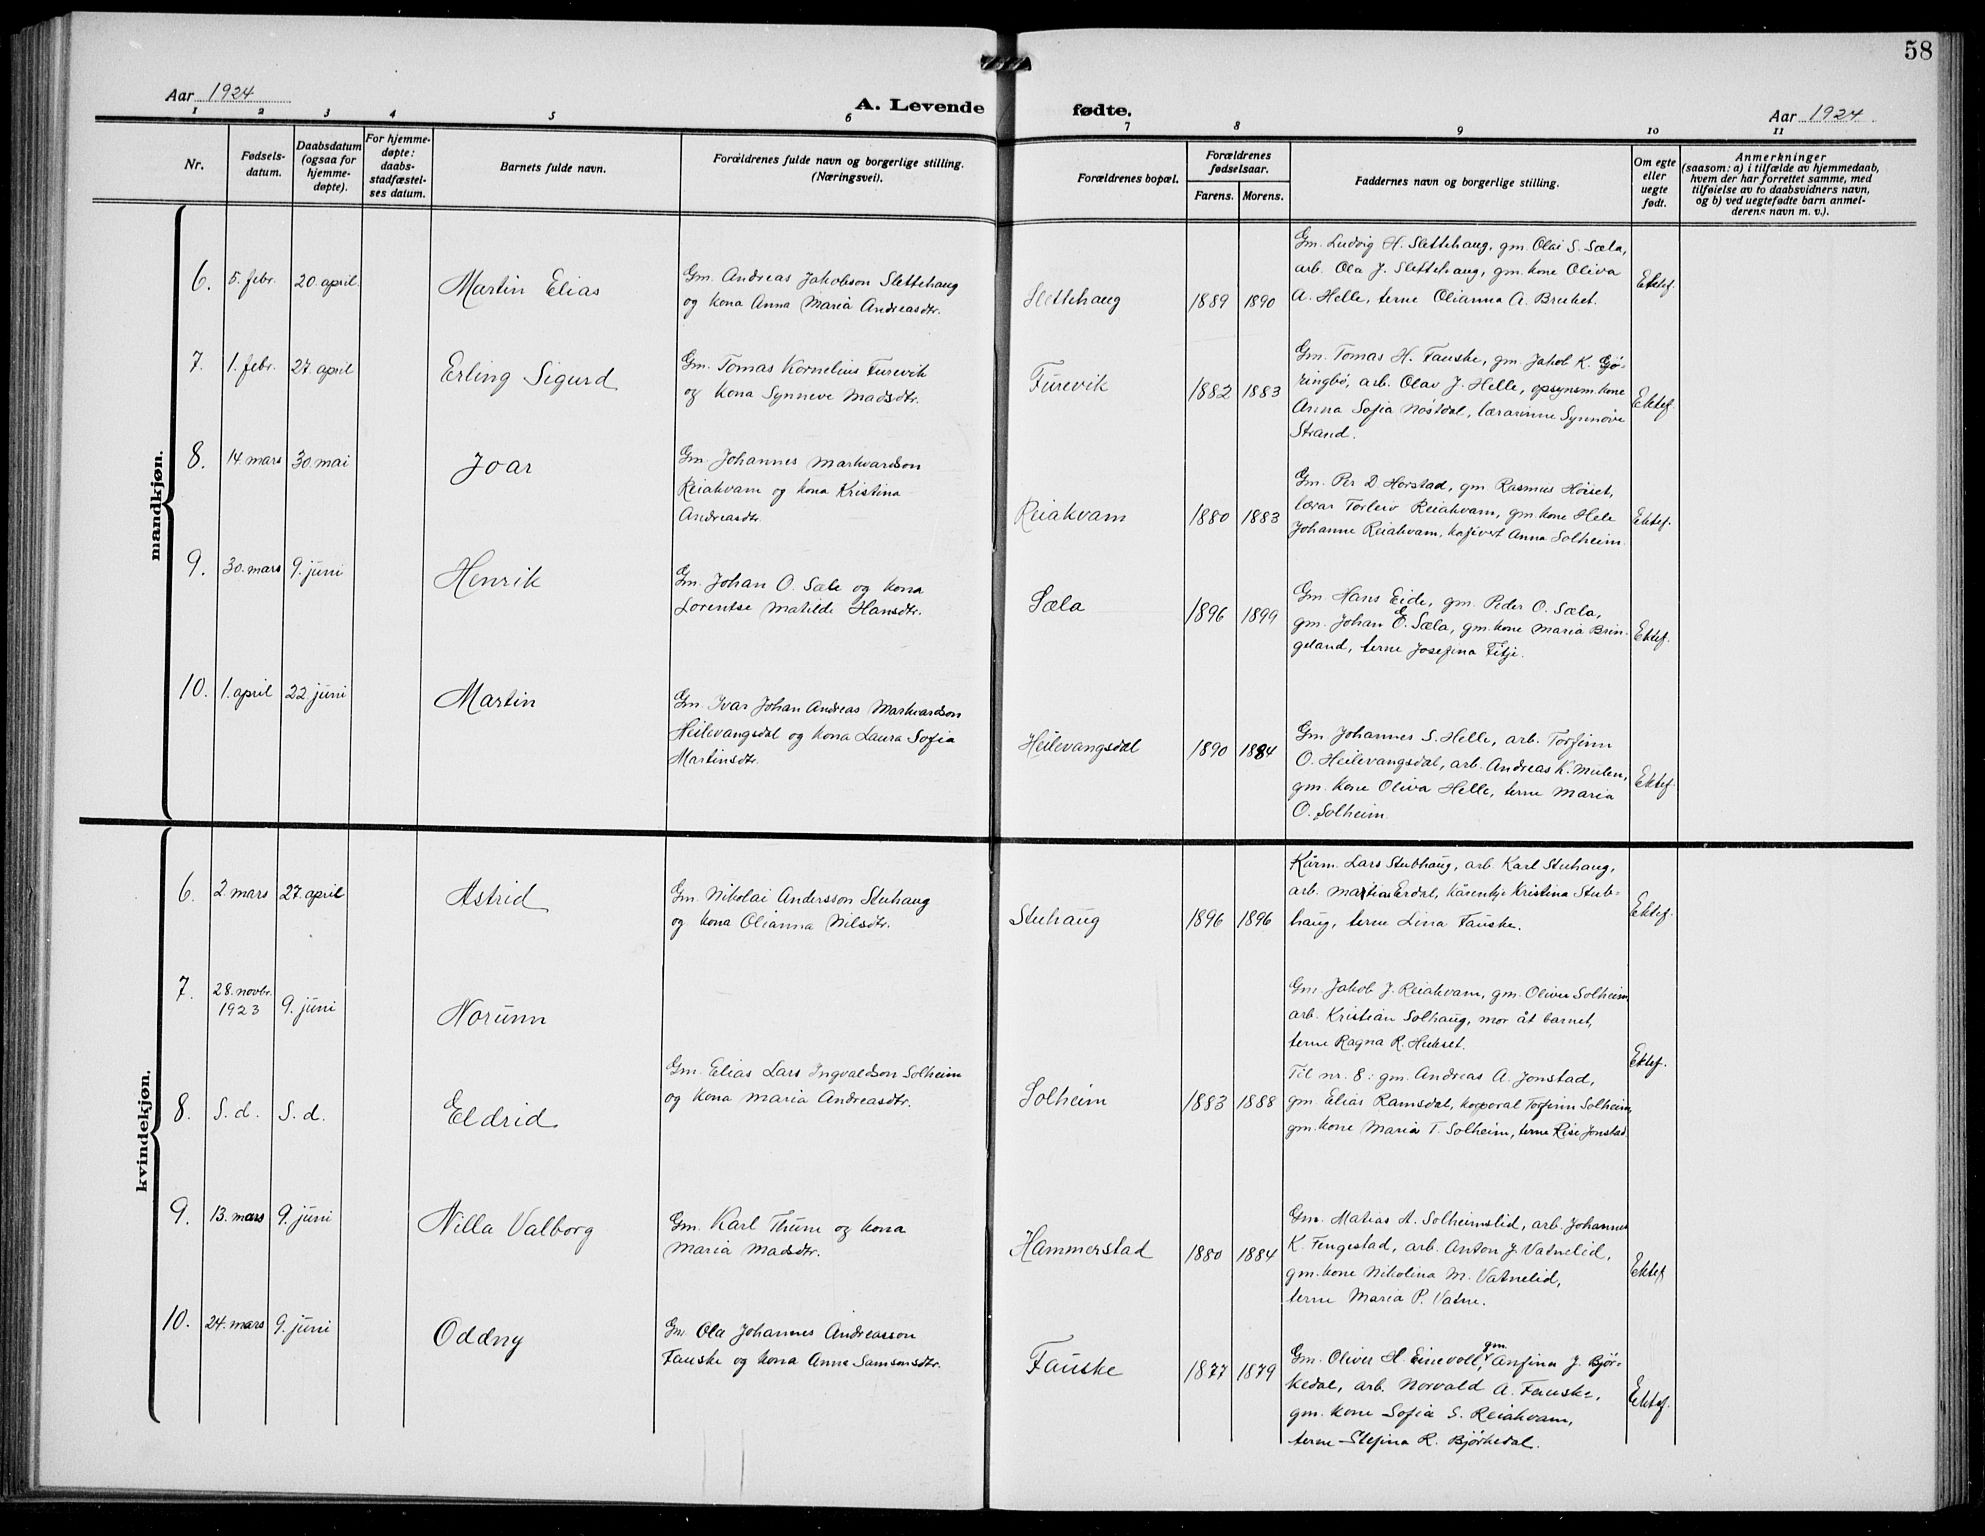 58
Aar 1924
A. Levende fødte.
Aar 1924
1 2 3 4 5 6 7 8 9 10 11
Nr.
Fødsels-
datum.
Daabsdatum
(ogsaa for
hjemme-
døpte).
For hjemme-
døpte:
daabs-
stadfæstel-
ses datum.
Barnets fulde navn.
Forældrenes fulde navn og borgerlige stilling.
(Næringsvei).
Forældrenes bopæl.
Forældrenes
fødselsaar.
Farens. Morens.
Faddernes navn og borgerlige stilling.
Om egte
eller
uegte
født.
Anmerkninger
(saasom: a) i tilfælde av hjemmedaab,
hvem der har forrettet samme, med
tilføielse av to daabsvidners navn,
og b) ved uegtefødte barn anmel-
derens navn m. v.).
mandkjøn.
6. 5. febr. 20. april Martin Elias
Gm. Andreas Jakobson Slettehaug
og kona Anna Maria Andreasdtr.
Slettehaug 1889 1890
Gm. Ludvig H. Slettehaug, gm. Olai S. Sæla,
arb. Ola J. Slettehaug, gm. kone Oliva
A. Helle, terne Olianna A. Bruket.
Ektef.
7. 1. febr. 27. april Erling Sigurd
Gm. Tomas Kornelius Furevik
og kona Synneve Madsdtr.
Furevik 1882 1883
Gm. Tomas H. Fauske, gm. Jakob K. Gjø-
ringbø, arb. Olav J. Helle, opsynsm. kone
Anna Sofia Nøstdal, lærarinne Synnøve
Strand.
Ektef.
8. 14. mars 30. mai Joar
Gm. Johannes Markvardson
Reiakvam og kona Kristina
Andreasdtr.
Reiakvam 1880 1883
Gm. Per D Horstad, gm Rasmus Høiset,
lærar Torleiv Reiakvam, gm. kone Hele
Johanne Reiakvam, kafivert Anna Solheim.
Ektef.
9. 30. mars 9. juni Henrik
Gm. Johan O. Sæle og kona
Lorentse Matilde Hansdtr.
Sæla 1896 1899
Gm. Hans Eide, gm. Peder O. Sæla,
gm. Johan E. Sæla, gm. kone Maria Brin-
geland, terne Josefina Fitje.
Ektef.
10. 1. april 22 juni Martin
Gm. Ivar Johan Andreas Markvardson
Heilevangsdal og kona Laura Sofia
Martinsdtr.
Heilevangsdal 1890 1884
Gm. Johannes S. Helle, arb. Torfinn
O. Heilevangsdal, arb. Andreas K. Mulen,
gm. kone Oliva Helle, terne Maria
O. Solheim.
Ektef.
kvindekjøn.
6. 2 mars 27. april Astrid
Gm. Nikolai Andersson Stuhaug
og kona Olianna Nilsdtr.
Stuhaug 1896 1896
Kurm. Lars Stubhaug, arb. Karl Stuhaug,
arb. Martin Erdal, kårenkje Kristina Stub-
haug, terne Lina Fauske.
Ektef.
7. 28. novbr.
1923 9. juni Norunn
Gm. Jakob J. Reiakvam, gm. Oliver Solheim,
arb. Kristian Solhaug, mor åt barnet,
terne Ragna R. Hukset.
Gm. Elias Lars Ingvaldson Solheim
og kona Maria Andreasdtr.
Solheim 1883 1888
Ektef.
8. S. d. S. d. Eldrid
Til nr. 8: gm. Andreas A. Jonstad,
gm. Elias Ramsdal, korporal Torfinn Solheim,
gm. kone Maria T. Solheim, terne Lise Jonstad.
9. 13. mars 9. juni Nilla Valborg
Gm. Karl Thune og kona
Maria Madsdtr.
Hammerstad 1880 1884
Gm. Matias A. Solheimslid, arb. Johannes
K. Fengestad, arb. Anton J. Vatnelid,
gm. kone Nikolina M. Vatnelid,
terne Maria P. Vatne.
Ektef
10. 24. mars 9. juni Oddny
Gm. Ola Johannes Andreasson
Fauske og kona Anna Samsonsdtr.
Fauske 1877 1879
gm.
Gm. Oliver H. Einevoll, Anfinn J. Bjør-
kedal, arb. Norvald A. Fauske,
gm. kone Sofia S. Reiakvam,
terne Stefina R. Bjørkedal.
Ektef.